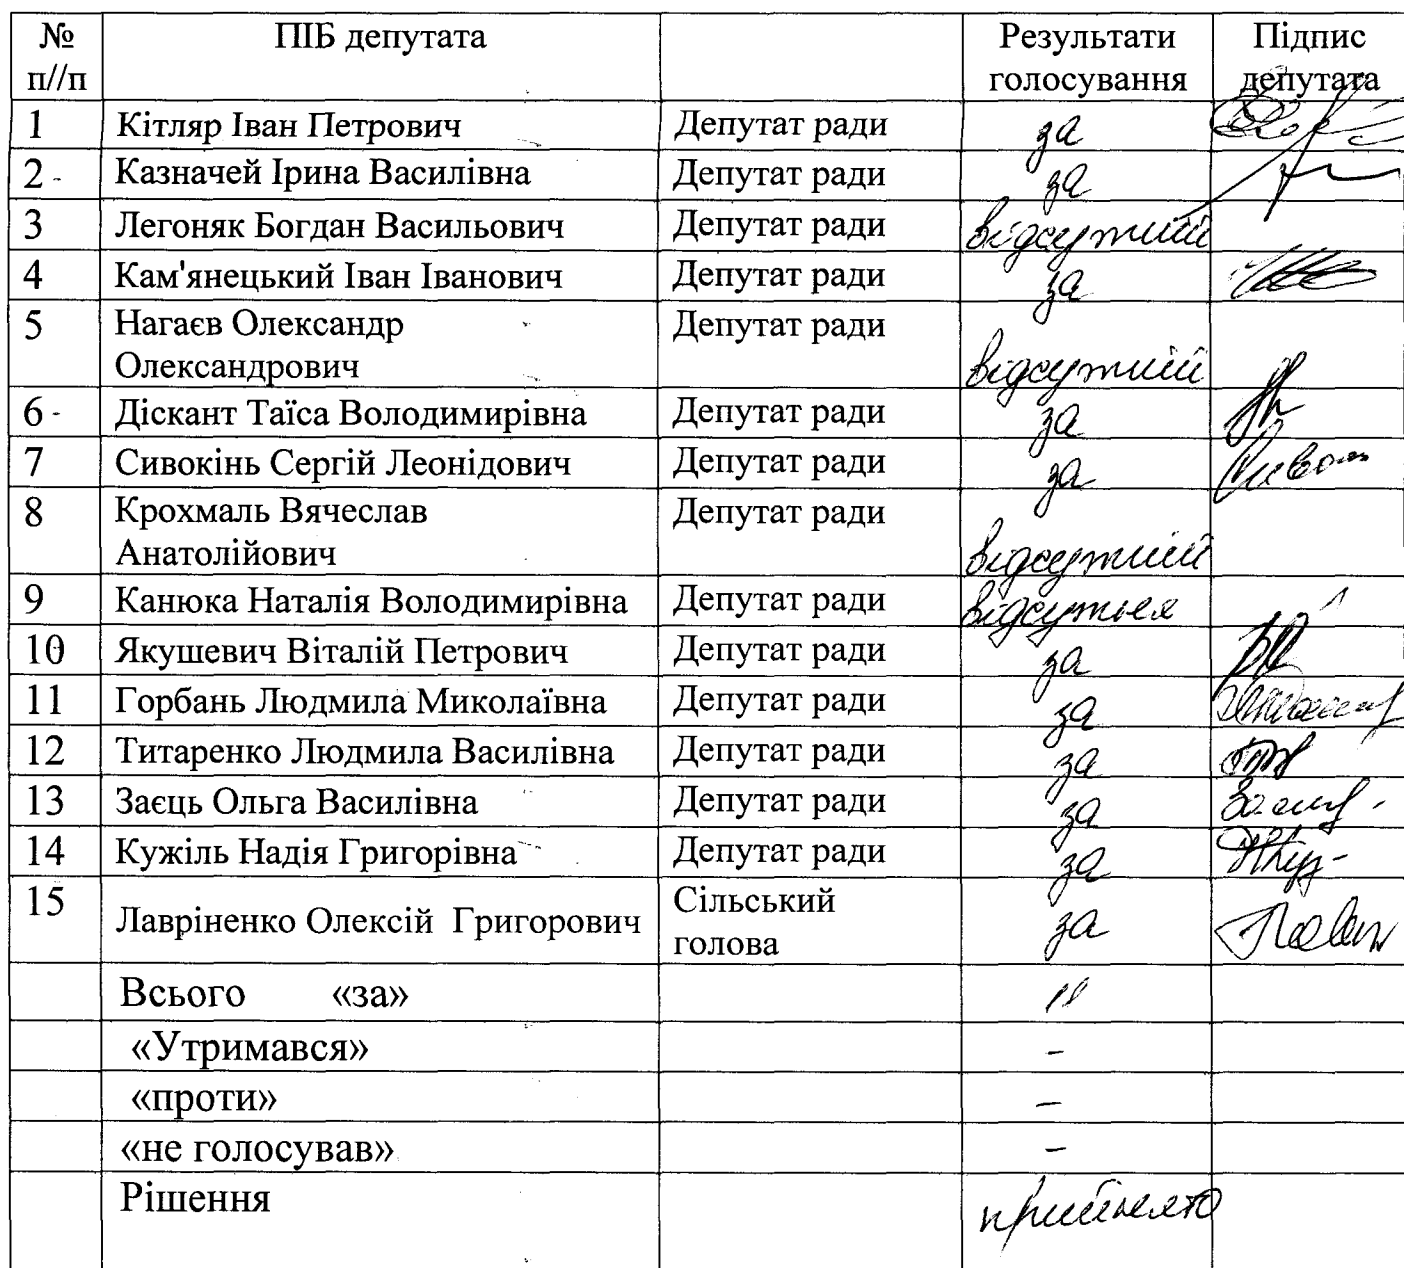 № ПІБ депутата Результати Підпис
п//п голосування депутата
1 Кітляр Іван Петрович Депутат ради за
2 - Казначей Ірина Василівна Депутат ради за
3 Легоняк Богдан Васильович Депутат ради відсутній
4 Кам'янецький Іван Іванович Депутат ради за
5 Нагаєв Олександр Депутат ради
Олександрович відсутній
6 - Діскант Таїса Володимирівна Депутат ради за
7 Сивокінь Сергій Леонідович Депутат ради за
8 Крохмаль Вячеслав Депутат ради
Анатолійович відсутній
9 Канюка Наталія Володимирівна Депутат ради відсутня
10 Якушевич Віталій Петрович Депутат ради за
11 Горбань Людмила Миколаївна Депутат ради за
12 Титаренко Людмила Василівна Депутат ради за
13 Заєць Ольга Василівна Депутат ради за
14 Кужіль Надія Григорівна Депутат ради за
15 Лавріненко Олексій Григорович Сільський за
голова
Всього «за» 11
«Утримався» -
«проти» -
«не голосував» -
Рішення прийнято